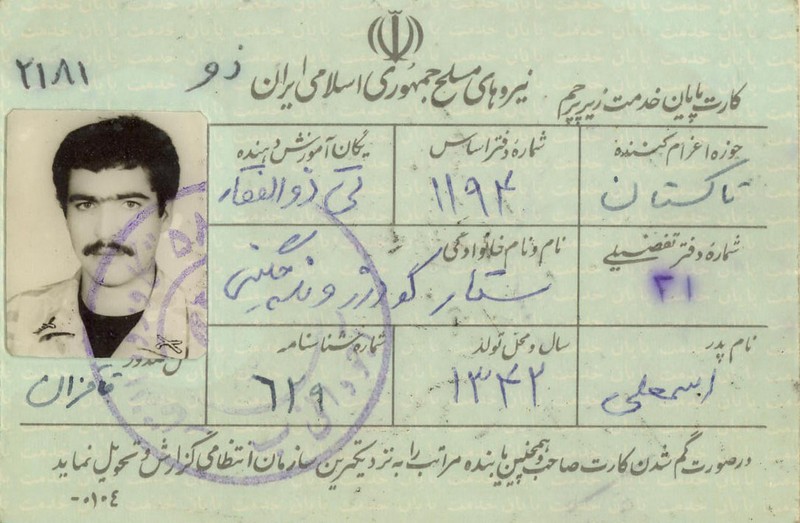 ۲۱۸۱
ذو
کارت پایان خدمت زیر پرچم نیروهای مسلح جمهوری اسلامی ایران
حوزه اعزام کننده
شماره دفتر اساس
یگان آموزش دهنده
تاکستان
۱۱۹۴
تی ذوالفقار
شماره دفتر تفضیلی
نام و نام خانوادگی
۲۱
ستار گودرزوند چگینی
نام پدر
سال و محل تولد
شماره شناسنامه
محل صدور
۱۳۴۲
۶۲۹
درصورت گم شدن کارت صاحب و همچنین یابنده مراتب را به نزدیکترین سازمان انتظامی گزارش و تحویل نماید
۰۱۰۴-